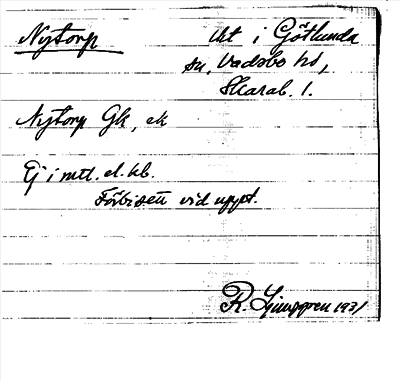 Nytorp
Ut i Götlunda
sn, Vadsbo hd,
Skarab. l.
Nytorp Gk, ek
Ej i mtl. el. kb.
Förbisett vid uppt.
R. Ljunggren 1931